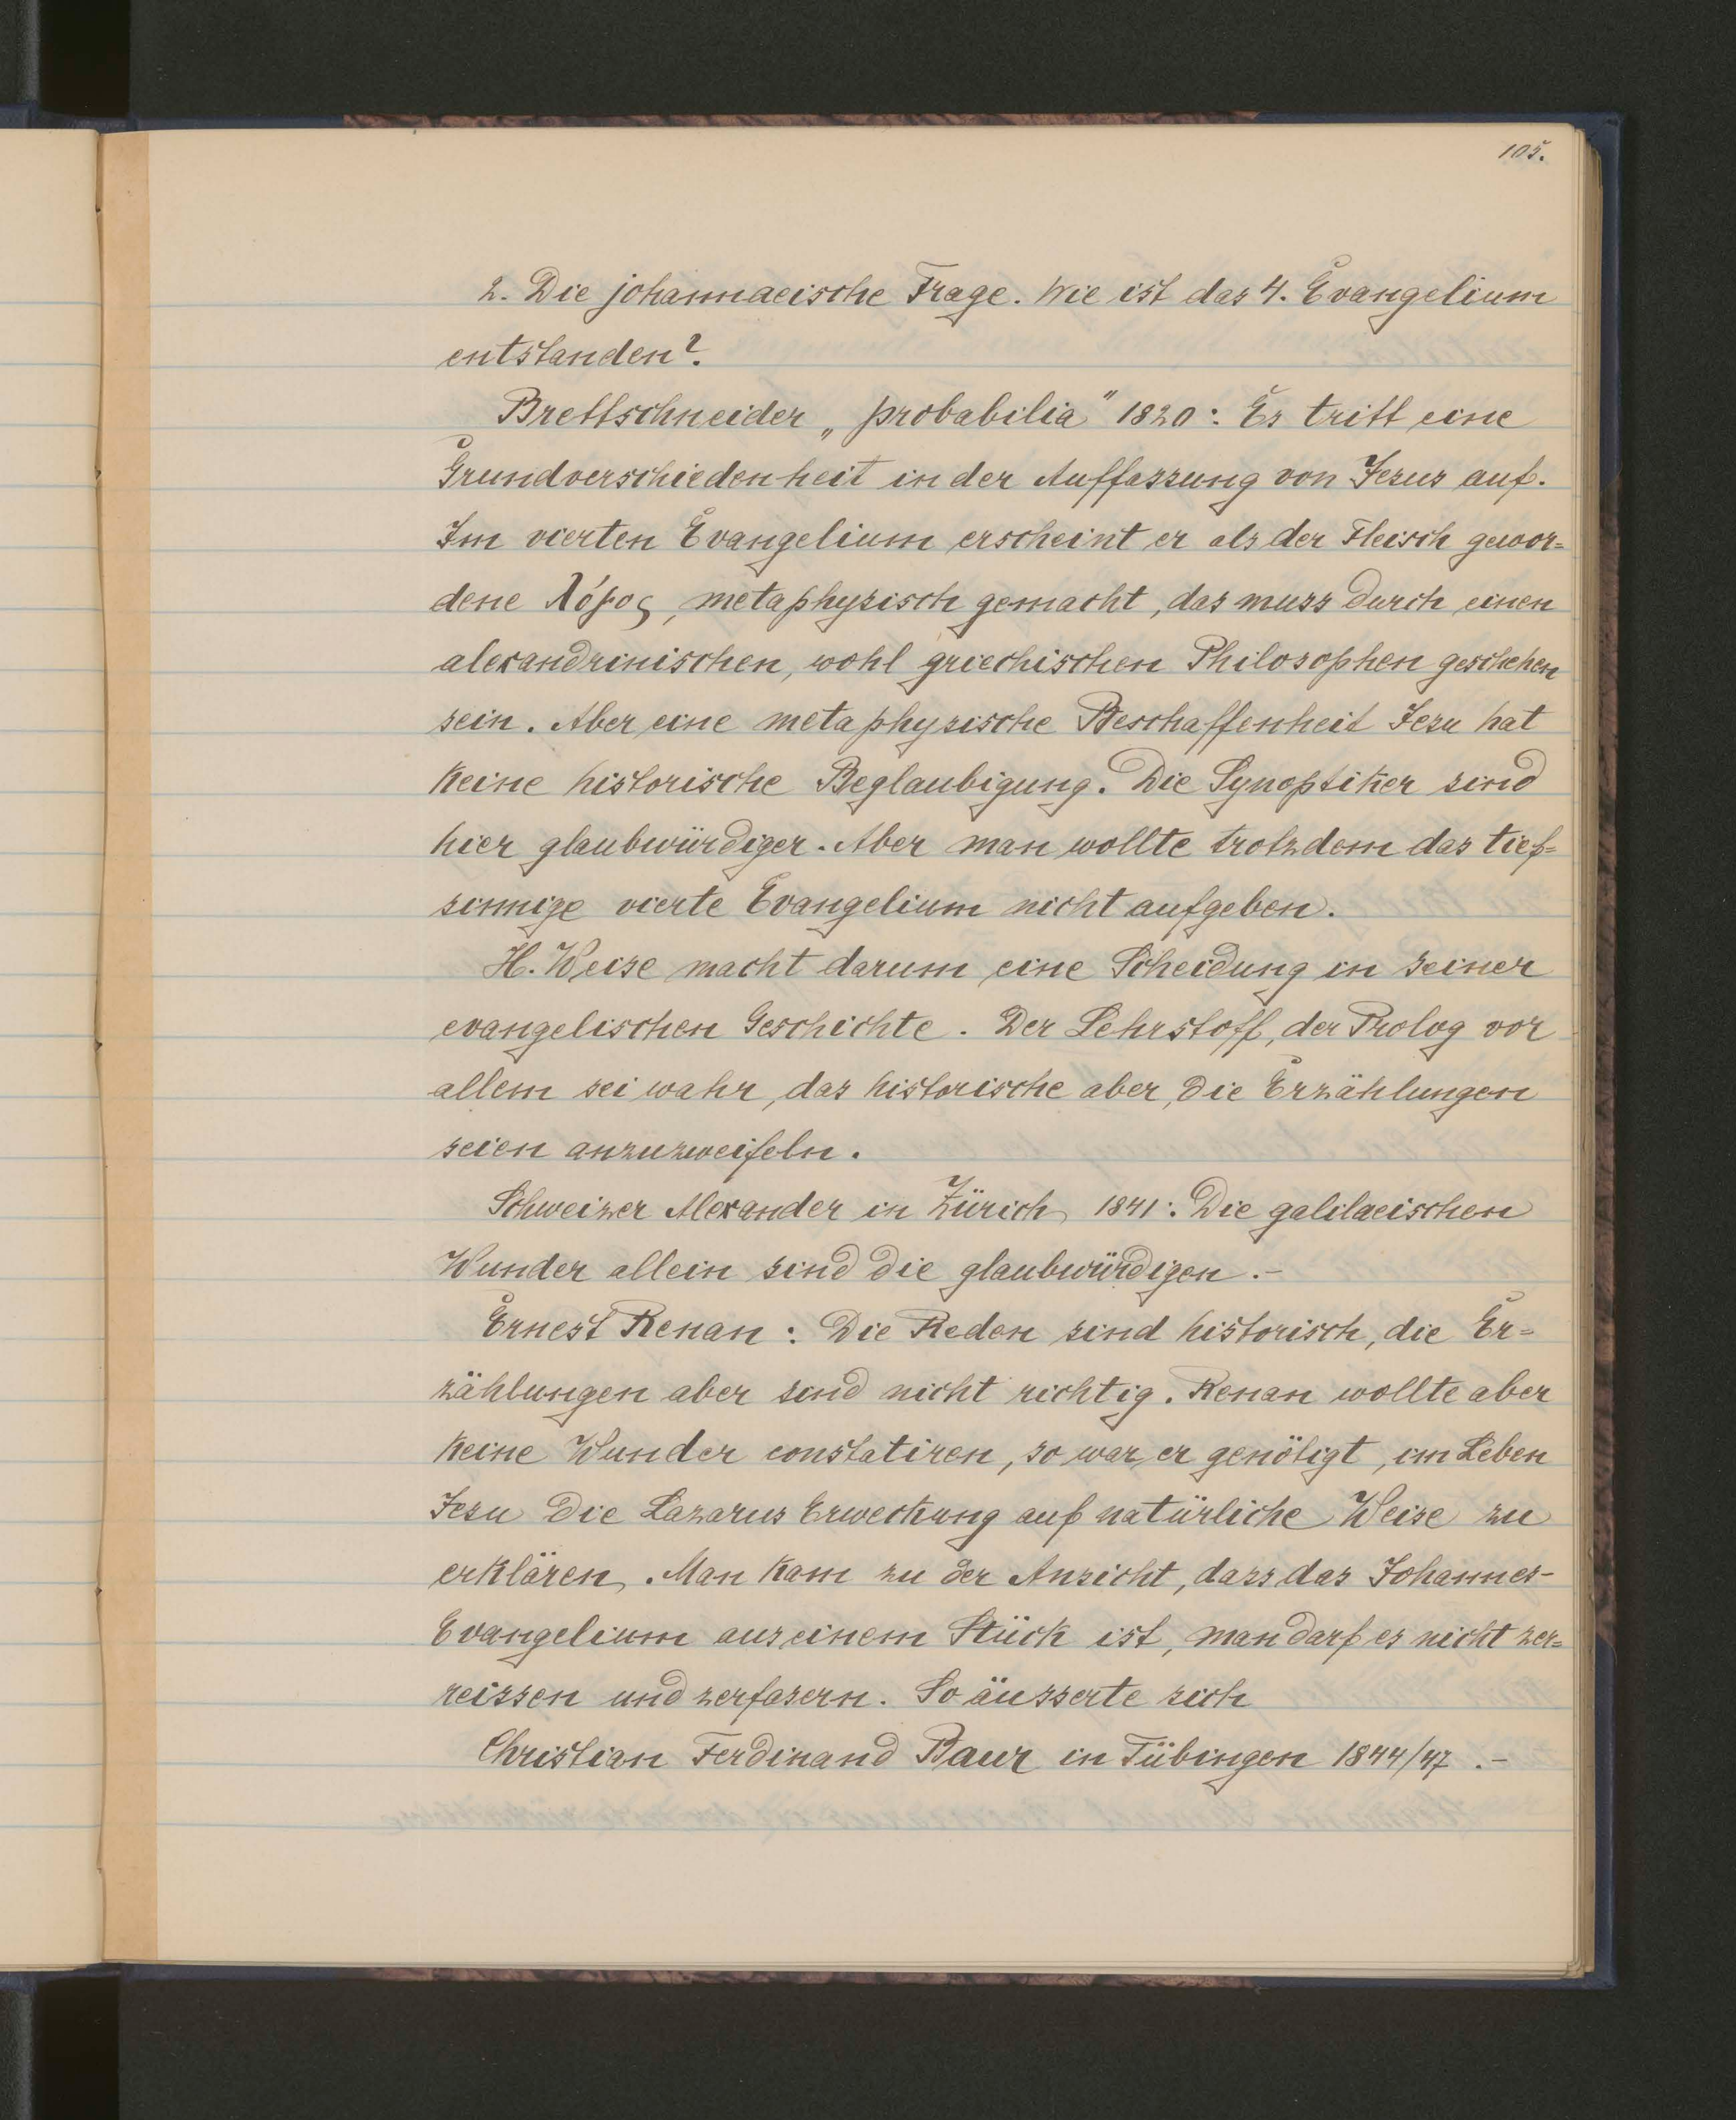 105.
2. Die johannaeische Frage. Wie ist das 4. Evangelium
entstanden?
Brettschneider „probabilia" 1820: Es tritt eine
Grundverschiedenheit in der Auffassung von Jesus auf.
Im vierten Evangelium erscheint er als der Fleisch gewor=
dene λόγος, metaphysisch gemacht, das muss durch einen
alexandrinischen, wohl griechischen Philosophen geschehen
sein. Aber eine metaphysische Beschaffenheit Jesu hat
keine historische Beglaubigung. Die Synoptiker sind
hier glaubwürdiger. Aber man wollte trotzdem das tief=
sinnige vierte Evangelium nicht aufgeben.
H. Weise macht darum eine Scheidung in seiner
evangelischen Geschichte. Der Lehrstoff, der Prolog vor
allem sei wahr, das historische aber, die Erzählungen
seien anzuzweifeln.
Schweizer Alexander in Zürich 1841: Die galilaeischen
Wunder allein sind die glaubwürdigen.-
Ernest Renan: Die Reden sind historisch, die Er=
zählungen aber sind nicht richtig. Renan wollte aber
keine Wunder constatiren, so war er genötigt, im Leben
Jesu die Lazarus Erweckung auf natürliche Weise zu
erklären. Man kam zu der Ansicht, dass das Johannes-
Evangelium aus einem Stück ist, man darf es nicht zer=
reissen und zerfasern. So äusserte sich
Christian Ferdinand Baur in Tübingen 1844/47.-